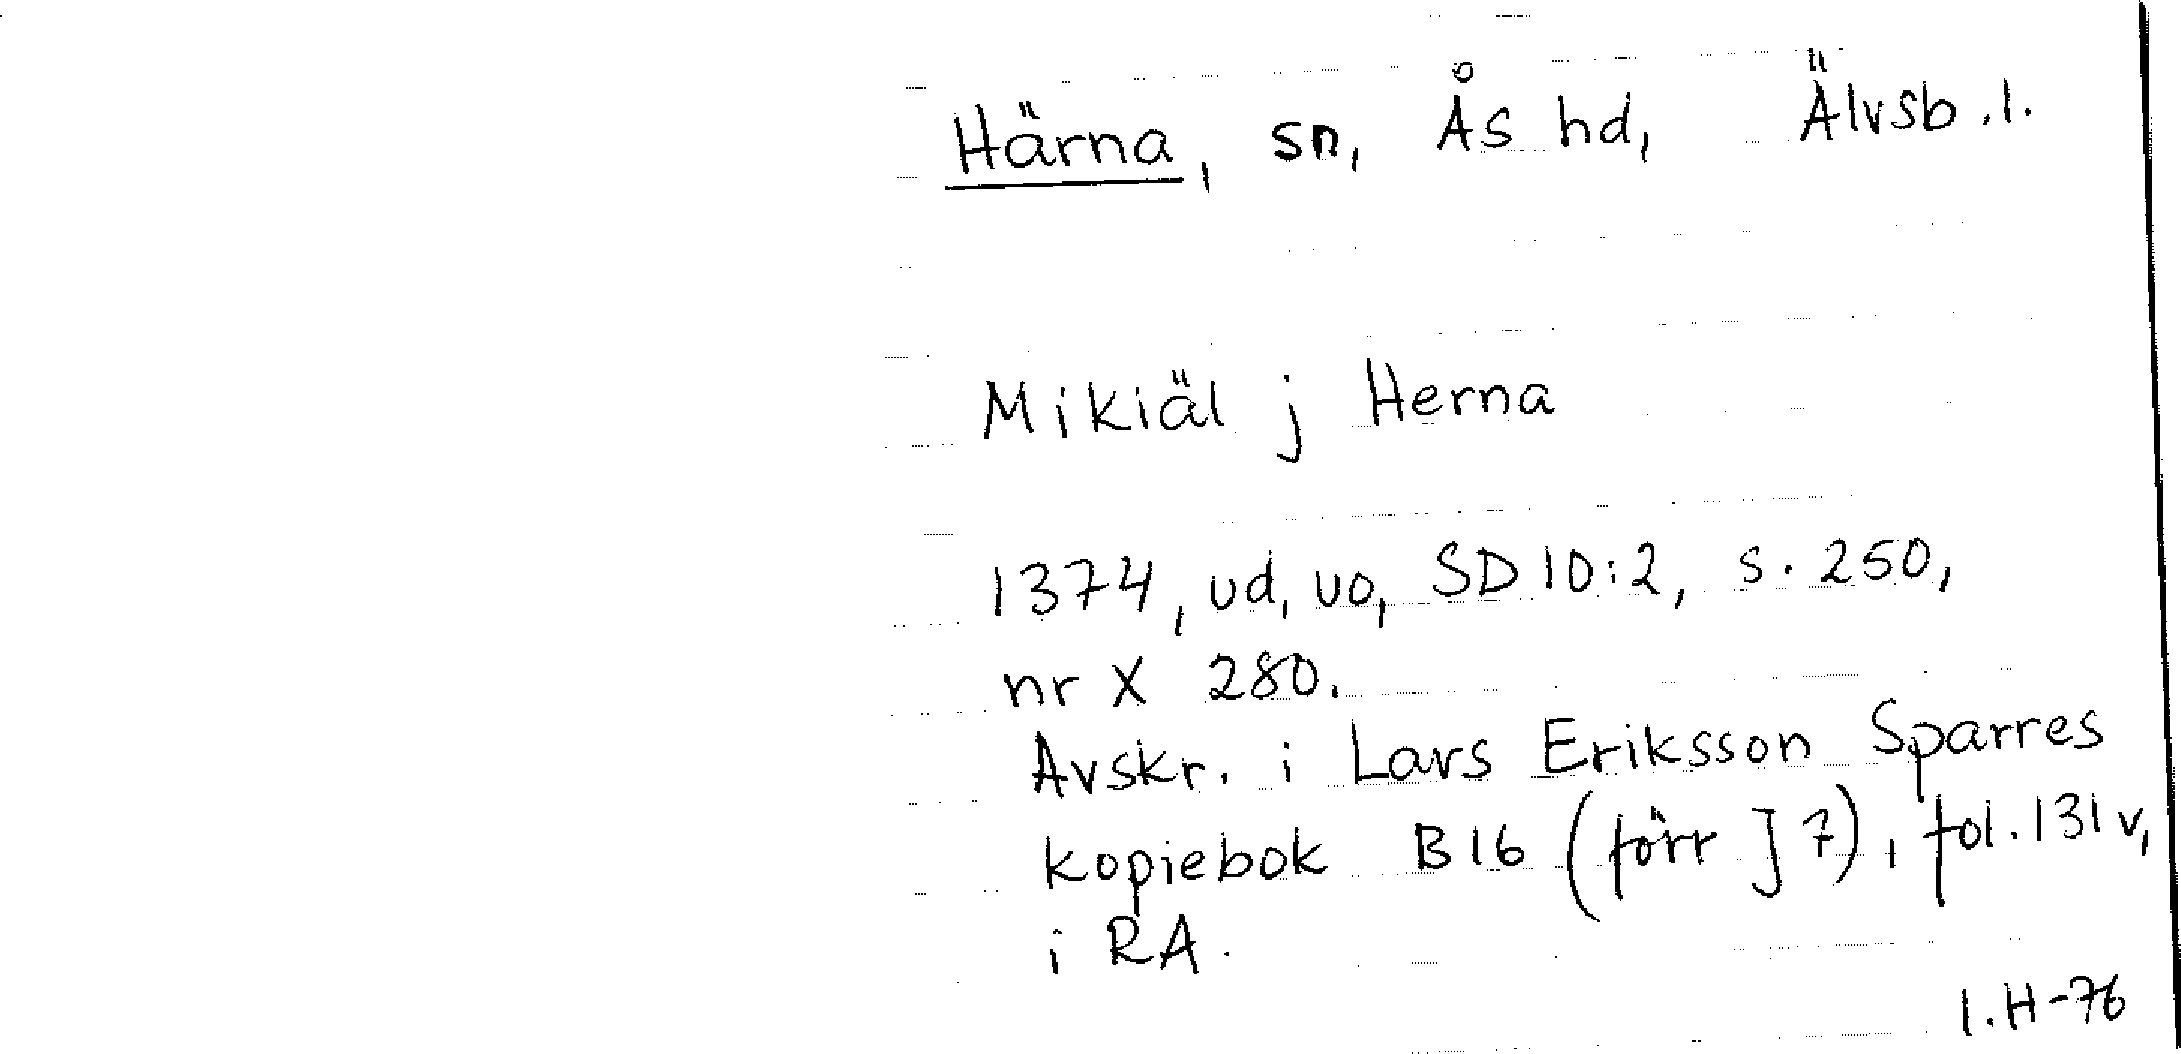 Härna, sn, Ås hd, Älvsb.l.
Mikiäl j Herna
1374, ud, uo, SD 10:2, s. 250,
nr X 280.
Avskr. i Lars Eriksson Sparres
kopiebok B16 (förr J 7), fol. 131 v,
i RA.
I.H-76